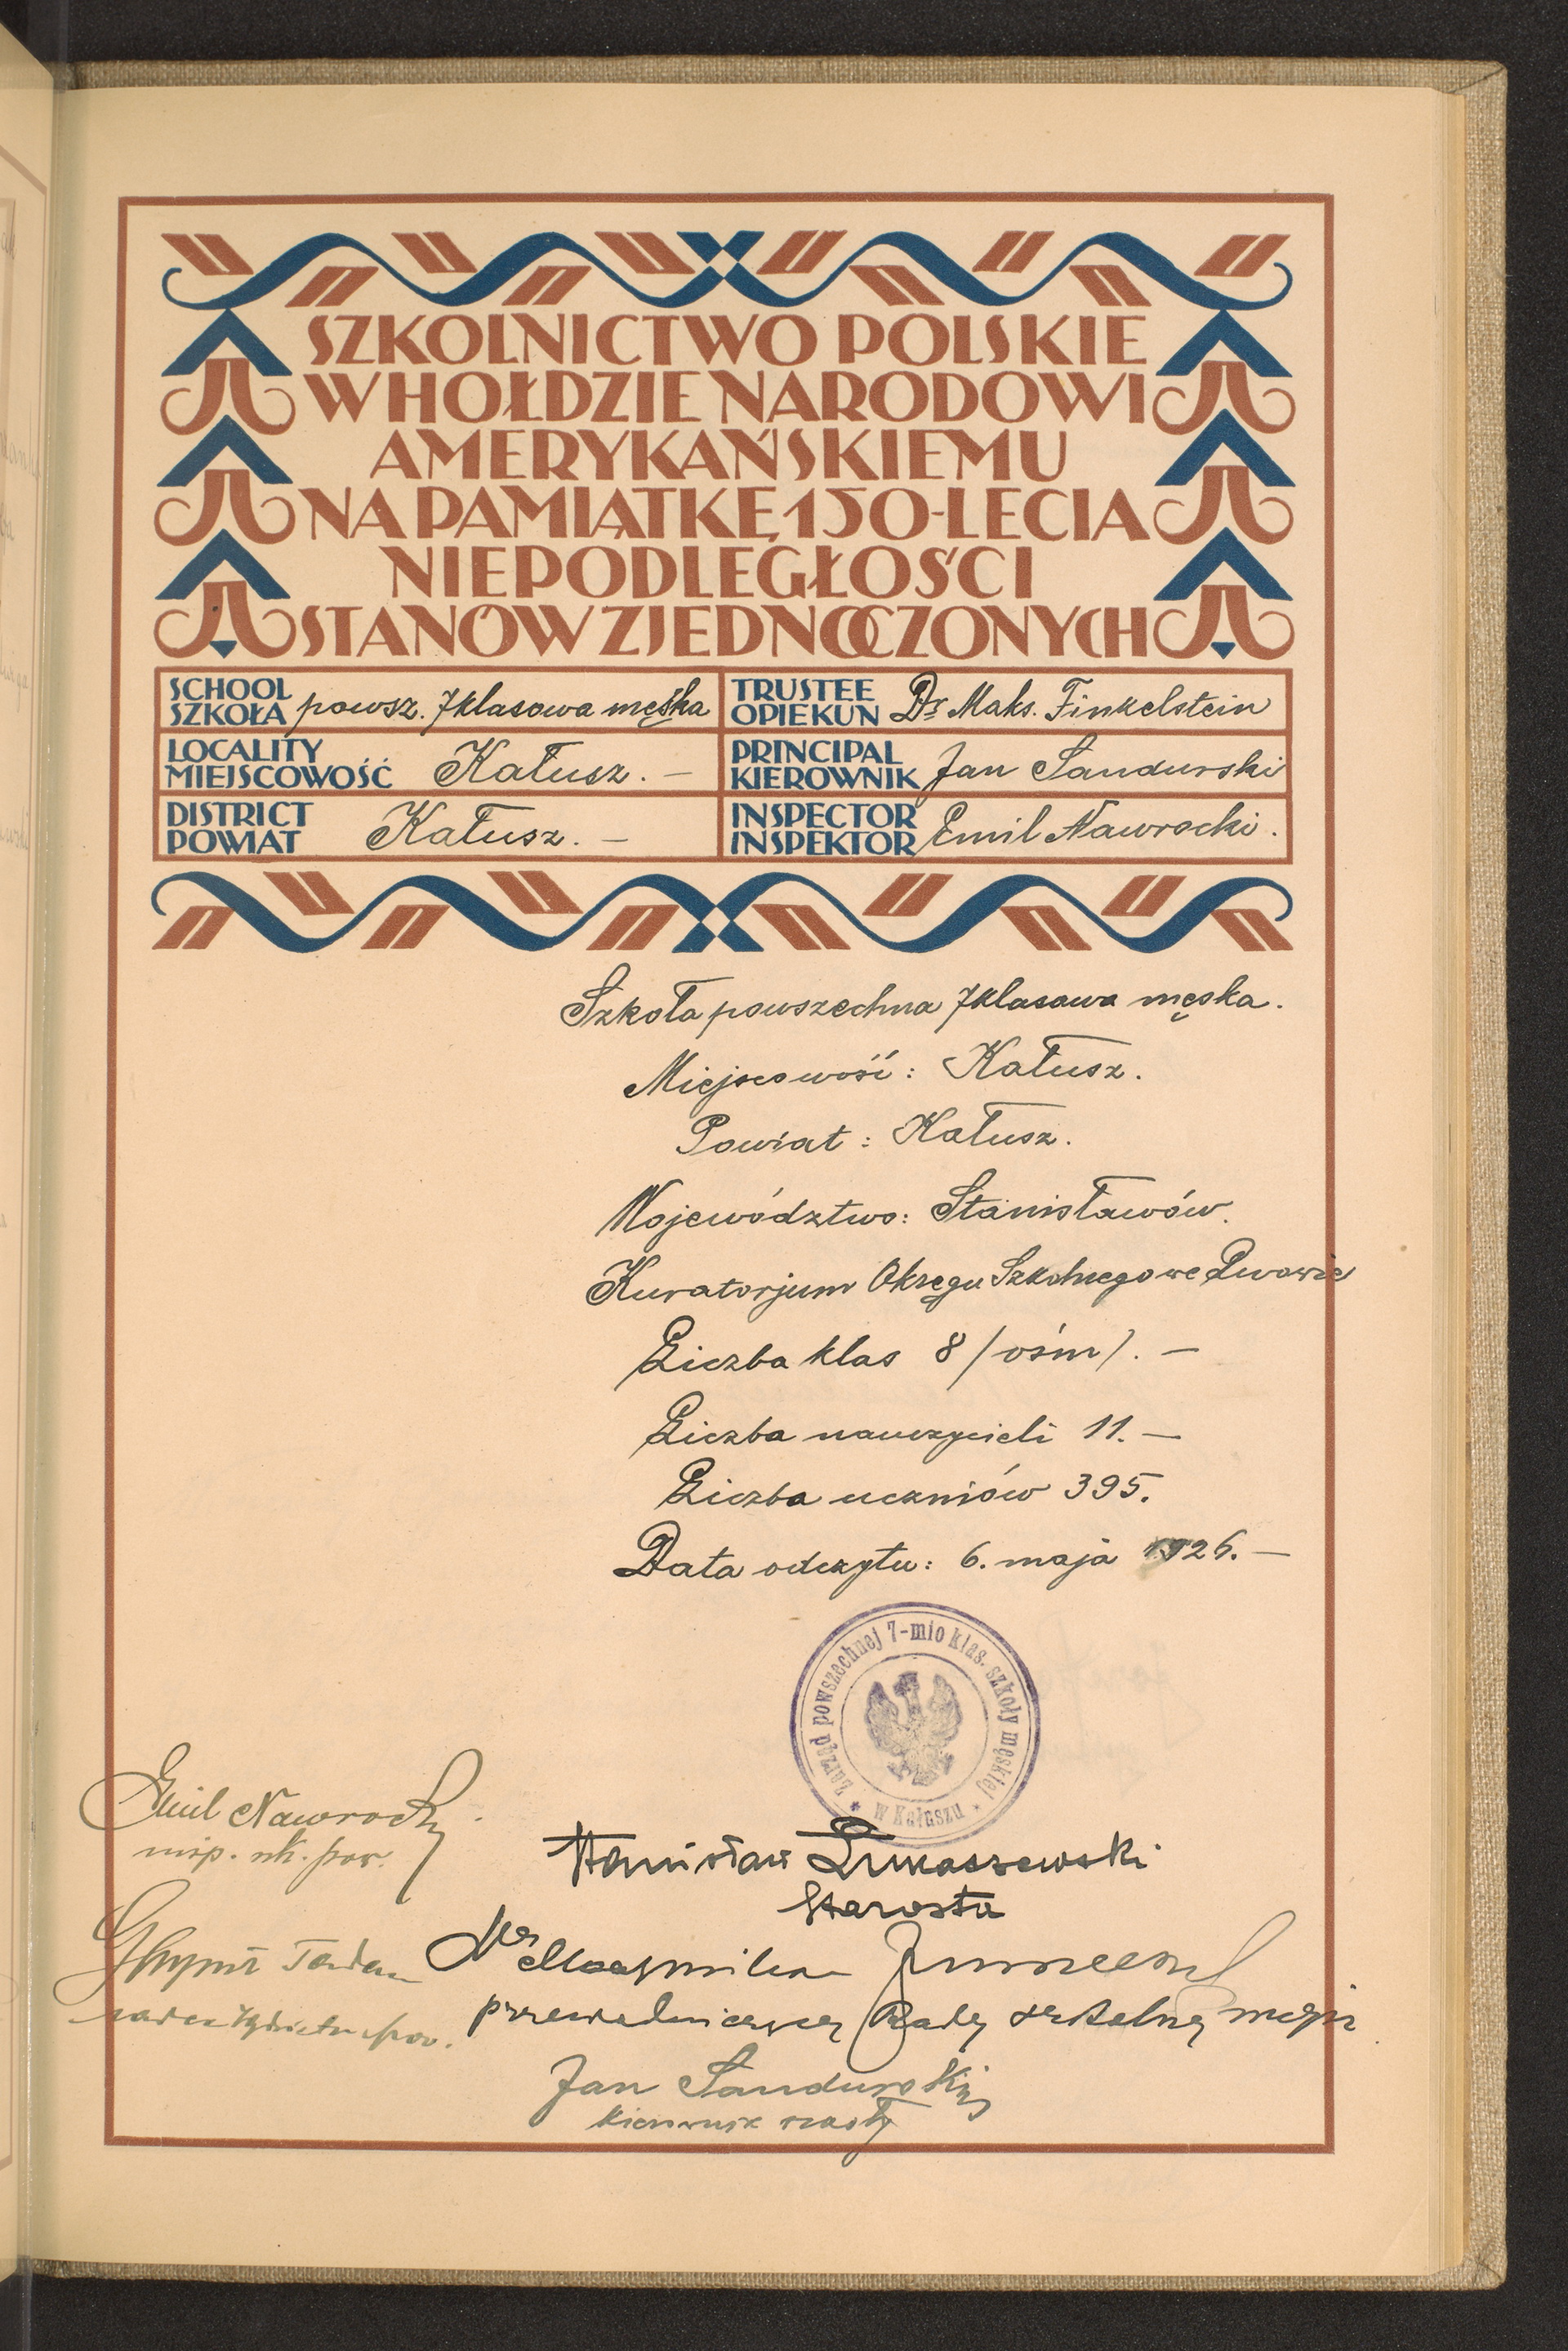 SZKOLNICTWO POLSKIE
W HOŁDZIE NARODOWI
AMERYKAŃSKIEMU
NA PAMIĄTKĘ 150-LECIA
NIEPODLEGŁOŚCI
STANÓW ZJEDNOCZONYCH
SCHOOL
SZKOŁA powsz. 7klasowa męska
TRUSTEE
OPIEKUN Dr Maks. Finkelstein
LOCALITY
MIEJSCOWOŚĆ Kałusz. —
PRINCIPAL
KIEROWNIK Jan Sandurski
DISTRICT
POWIAT Kałusz. —
INSPECTOR
INSPEKTOR Emil Nawrocki.
Szkoła powszechna 7klasowa męska.
Miejscowość: Kałusz.
Powiat: Kałusz.
Województwo: Stanisławów.
Kuratorjum Okręgu Szkolnego we Lwowie
Liczba klas 8 /ośm/. —
Liczba nauczycieli 11. —
Liczba uczniów 395.
Data odczytu: 6. maja 1926. —
Zarząd powszechnej 7-mio klas. szkoły męskiej
* w Kałuszu *
Emil Nawrocki
insp. szk. pow.
Stanisław Łukaszewski
Starosta
przewodniczący Rady szkolnej miejs
Jan Sandurski
kierownik szkoły